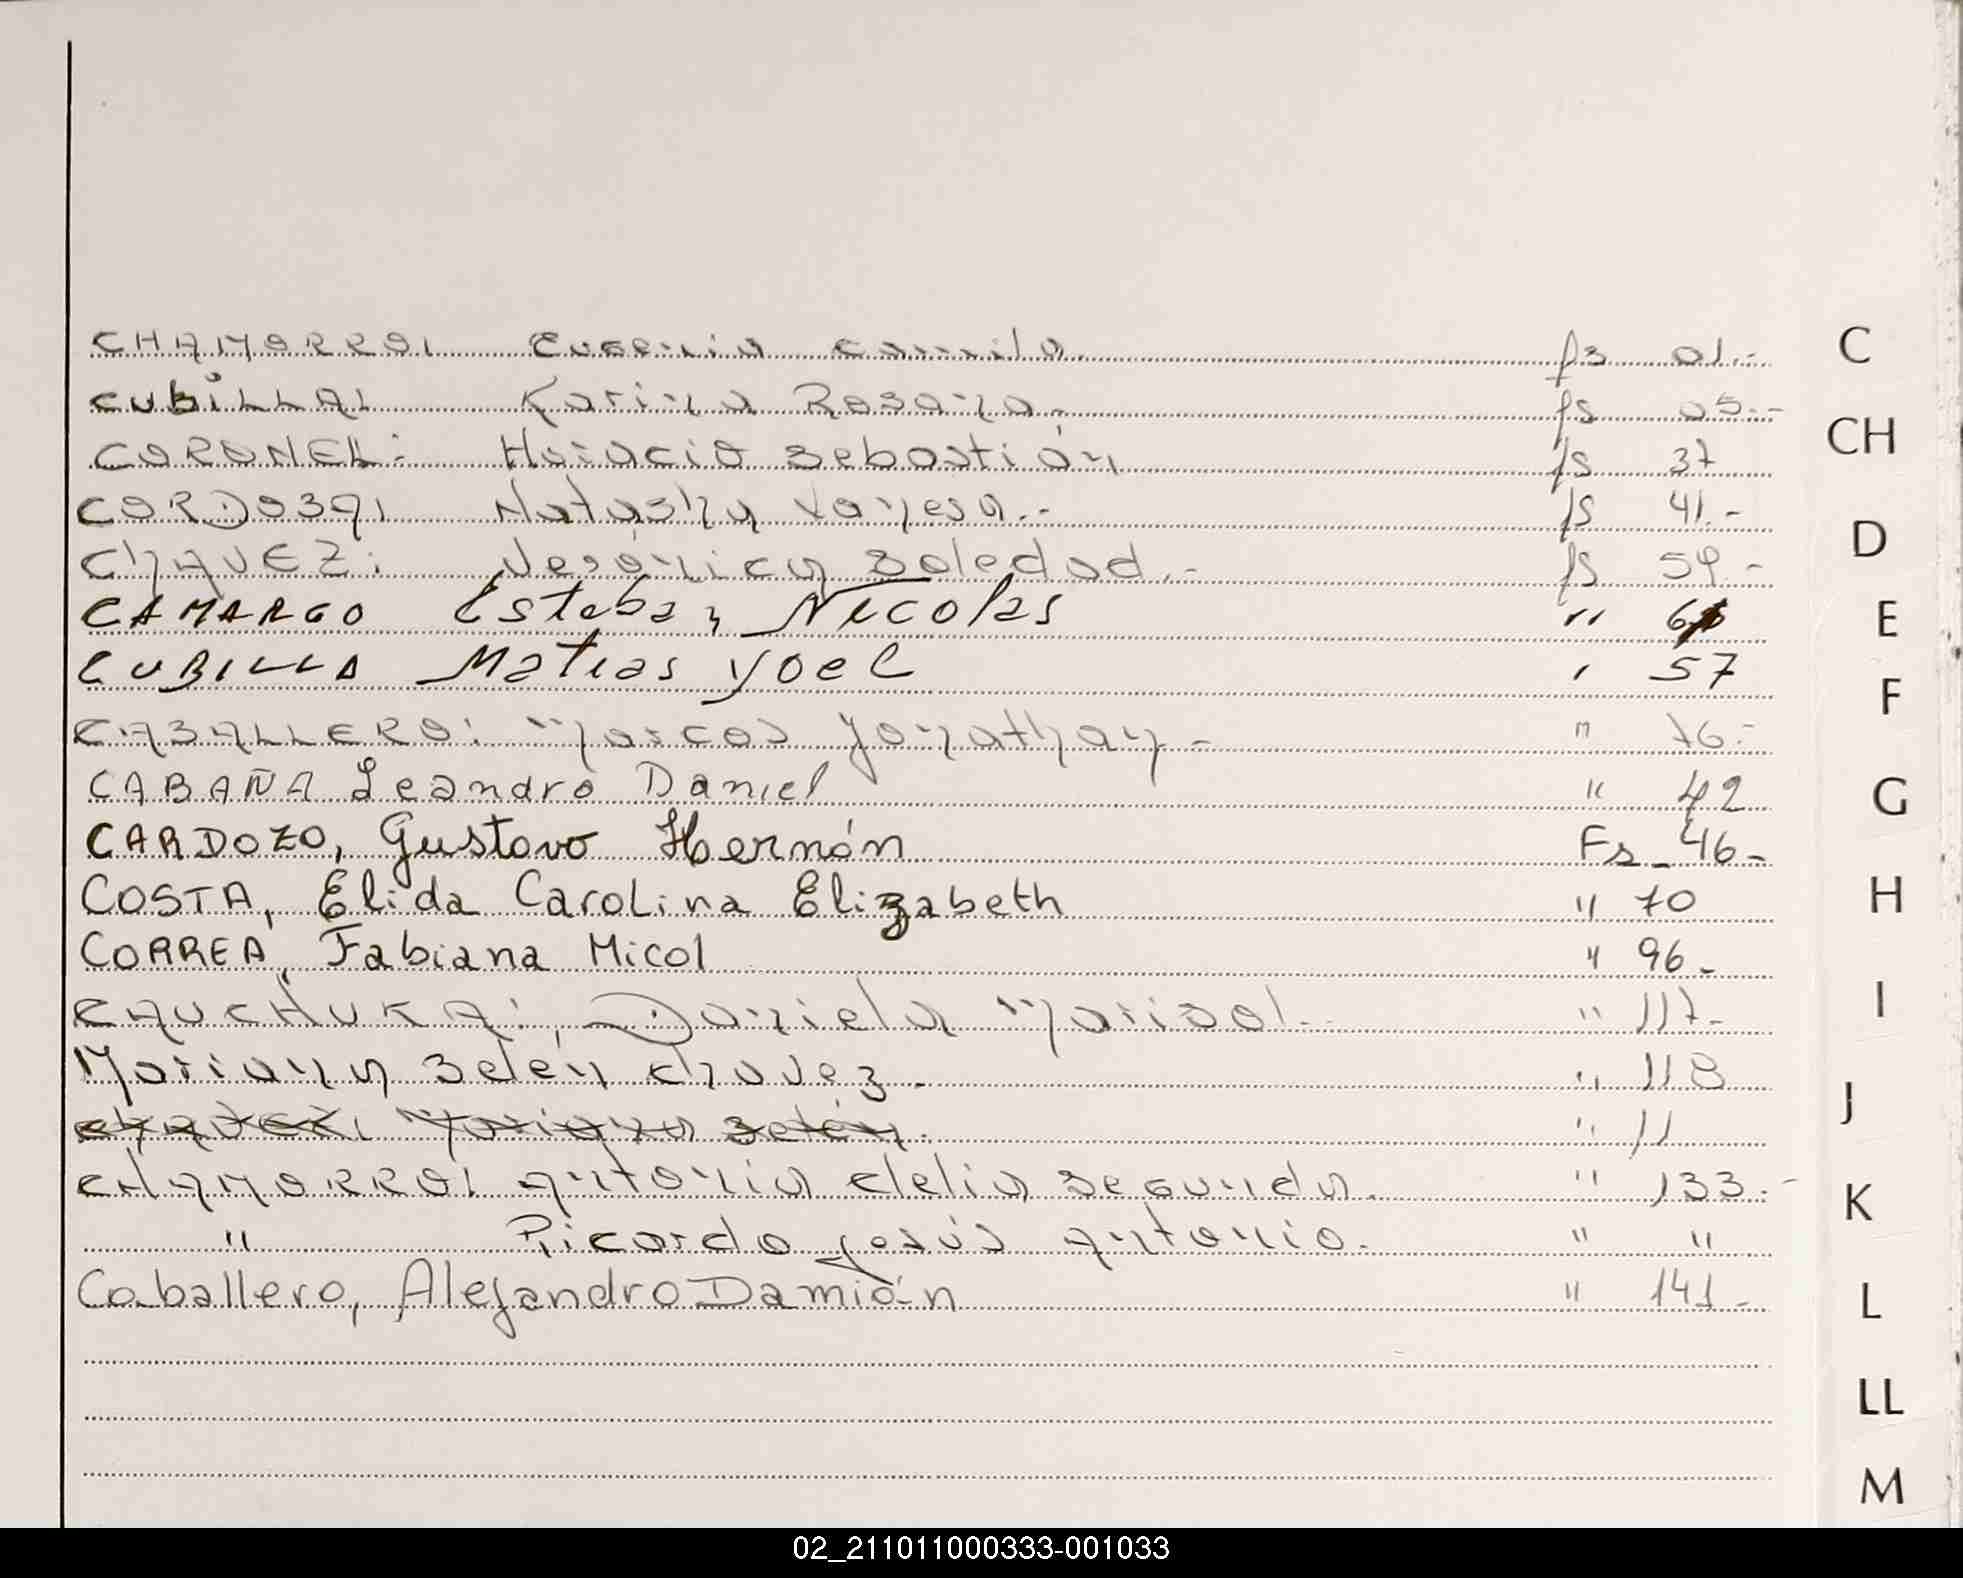 CHAMORRO: Eugenia Camila. fs 01.- C
CUBILLA: Karina Rosana. fs 05.-
CH
CORONEL: Horacio Sebastián fs 37
CORDOBA: Natasha Vanesa.- fs 41.-
D
CHAVEZ: Verónica Soledad.- fs 59.-
CAMARGO Esteban Nicolas " E
CUBILLA Matias Yoel " 57
F
CABALLERO: Marcos Jonathan - " 76.-
CABAÑA Leandro Daniel " 42 G
CARDOZO, Gustavo Hernán Fs - 46 -
COSTA, Elida Carolina Elizabeth " 70 H
CORREA, Fabiana Micol " 96 -
CAUCHUKA: Daniela Marisol. " 117.- I
Mariana Belén Chavez. " 118
J
CHAVEZ: Mariana Belén. " 11
CHAMORRO: Antonia Clelia Segunda. " 133.-
K
" Ricardo Jesús Antonio. " "
Caballero, Alejandro Damián " 141 - L
LL
M
02_211011000333-001033